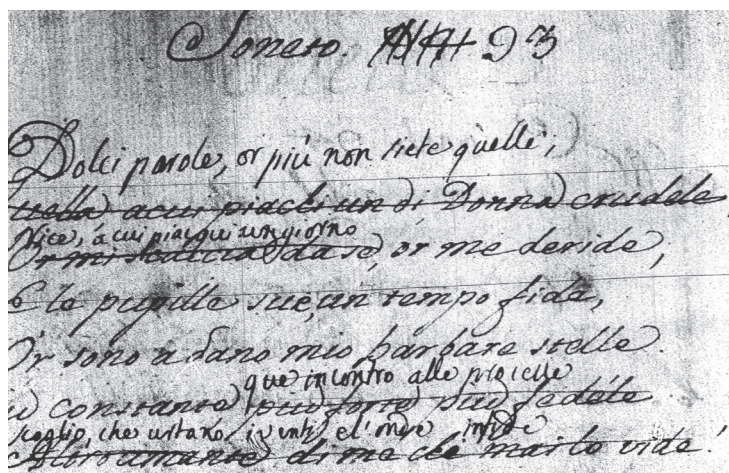 Soneto. 93
Dolci parole, or più non siete quelle;
a cui piacqui un di Donna crudele
Nice, à cui piacqui un giorno
Or mi scaccia da se, or me deride,
E le pupille sue, un tempo fide,
Or sono a dano mio barbare stelle.
que incontro alle procelle
constante più forte più fedele
scoglio, che urtano i venti el' onde infide
di me che mai lo vide!